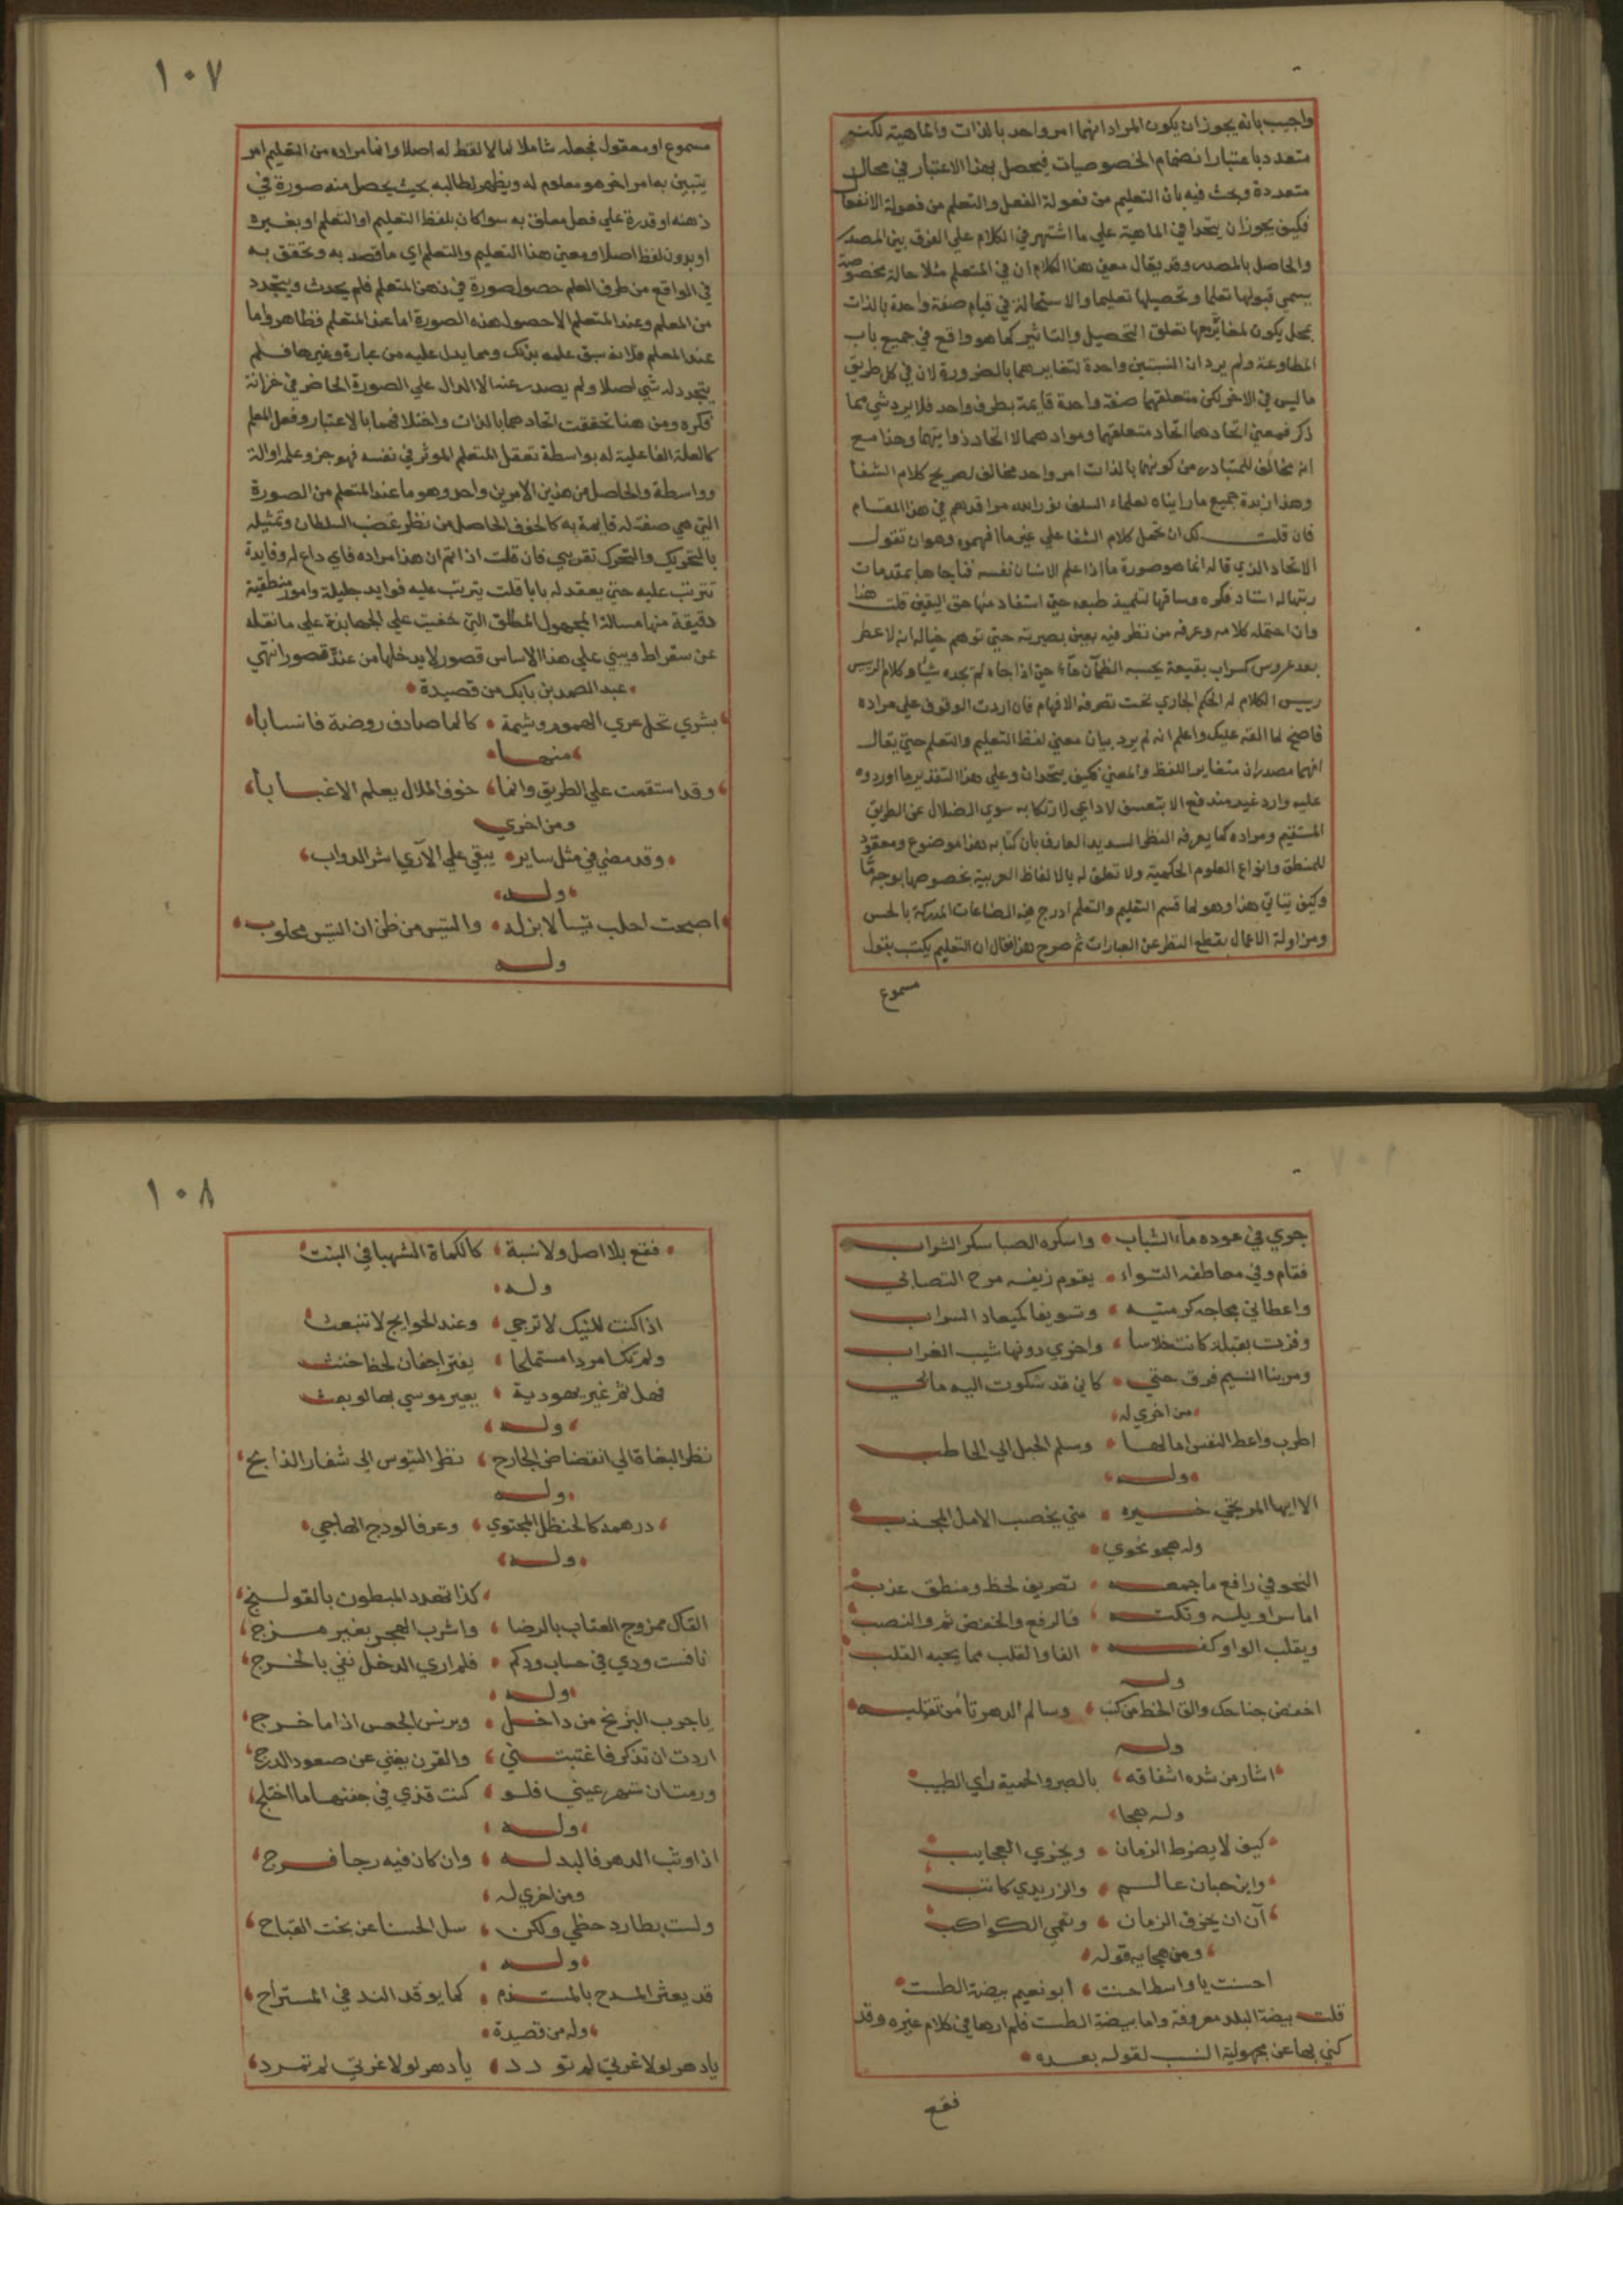 واجيب بانه يجوز ان يكون المراد انهما امر واحد بالذات والماهية لكنه
متعدد باعتبار انضمام الخصوصيات فيحصل بهذا الاعتبار في محال
متعددة وبحث فيه بان التعليم من فعولة الفعل والتعلم من فعولة الانفعا
فكيف يجوز ان يتحدا في الماهية علي ما اشتهر في الكلام علي الفرق بين المصدر
والحاصل بالمصدر وقد يقال معني هذا الكلام ان في المتعلم مثلا حالة مخصوصة
يسمي قبولها تعلما وتحصيلها تعليما والاستحالة في قيام صفة واحدة بالذات
بمحل يكون لمغايرها تعلق التحصيل والتاثير كما هو واقع في جميع باب
المطاوعة ولم يرد ان النسبتين واحدة لتغايرهما بالضرورة لان في كل طريق
ما ليس في الاخر لكن متعلقهما صفة واحدة قايمة بطرف واحد فلا يرد شي مما
ذكر فمعني اتحادهما اتحاد متعلقهما وموادهما لا اتحاد ذواتيهما وهذا مع
انه مخالف للمتبادر من كونهما بالذات امر واحد مخالف لصريح كلام الشفا
وهذا زبدة جميع ما رايناه لعلماء السلف نور الله مراقدهم في هذا المقام
فان قلت لك ان تحمل كلام الشفا علي غير ما افهموه وهو ان تقول
الاتحاد الذي قاله انما هو صورة ما اذا علم الانسان نفسه فناجاها بمقدمات
رتبها له استاد فكره وساقها لتلميذ طبعه حتي استفاد منها حق اليقين قلت هذا
وان احتمله كلامه وعرفه من نظر فيه بعين بصيرته حتي توهم خياله انه لا عطر
بعد عروس كسراب بقيعة يحسبه الظمآن ماء حتي اذا جاه لم يجده شيا وكلام الريس
رييس الكلام له الحكم الجاري تحت تصرفه الافهام فان اردت الوقوف علي مراده
فاصخ لما القه عليك واعلم انه لم يرد بيان معني لفظ التعليم والتعلم حتي يقال
انهما مصدران متغاير اللفظ والمعني فكيف يتحدان وعلي هذا التقدير ما اوردوه
عليه وارد غير مندفع الا بتعسف لا داعي لارتكابه سوي الضلال عن الطريق
المستقيم ومراده كما يعرفه النظر السديد العارف بان كتابه هذا موضوع ومعقود
للمنطق وانواع العلوم الحكمية ولا تعلق له بالالفاظ العربية بخصوصها بوجه ما
وكيف يتاتي هذا وهو لما قسم التعليم والتعلم ادرج فيه الصناعات المدركة بالحس
ومزاولة الاعمال بقطع النظر عن العبارات ثم صرح بهذا فقال ان التعليم يكتب بقول
مسموع
١٠٧
مسموع او معقول فجعله شاملا لما لا لفظ له اصلا وانما مراده من التعليم امر
يتبين به امر اخر هو معلوم له ويظهر لطالبه بحيث يحصل منه صورة في
ذهنه او قدرة علي فعل معلق به سوا كان بلفظ التعليم او التعلم او بغيره
او بدون لفظ اصلا ومعني هذا التعليم والتعلم اي ما قصد به وتحقق به
في الواقع من طرف العلم حصول صورة في ذهن المتعلم فلم يحدث ويتجدد
من المعلم وعند المتعلم الا حصول هذه الصورة اما عند المتعلم فظاهر واما
عند المعلم فلانه سبق علمه بذلك ومما يدل عليه من عبارة وغيرها فلم
يتجدد له شي اصلا ولم يصدر عنه الا الدال علي الصورة الحاضر في خزانة
فكره ومن هنا تحققت اتحادهما بالذات واختلافهما بالاعتبار وفعل المعلم
كالعلة الفاعلية له بواسطة تعقل المتعلم الموثر في نفسه فهو جزو علم او الة
وواسطة والحاصل من هذين الامرين واحد وهو ما عند المتعلم من الصورة
التي هي صفة له قايمة به كالخوف الحاصل من نظر غضب السلطان وتمثيله
بالتحريك والتحرك تقريبي فان قلت اذا تم ان هذا مراده فاي داع له وفايدة
تترتب عليه حتي يعقد له بابا قلت يترتب عليه فوايد جليلة وامور منطقية
دقيقة منها مسالة المجهول المطلق التي خفيت علي الجهابذة علي ما نقله
عن سقراط ويبني علي هذا الاساس قصور لا يدخلها من عنده قصور انتهي
عبد الصمد بن بابك من قصيدة
بشري تحل عري الهموم وشيمة كالما صادف روضة فانسابا
منها
وقد استقمت علي الطريق وانما خوف الملال يعلم الاغبابا
ومن اخري
وقد مضي في مثل ساير يبقي علي الآري شر الدواب
وله
اصبحت احلب تيسا لا بزله والتيس من ظن ان التيس محلوب
وله
جري في عوده ماء الشباب واسكره الصبا سكر الشراب
فقام وفي معاطفه التواء يقوم زيفه مرح التصابي
واعطاني مجاجه كرمتيه وتسويفا كميعاد السراب
وفزت بقبلة كانت خلاسا واخري دونها شيب الغراب
ومر بنا النسيم فرق حتي كاني قد شكوت اليه ما بي
من اخري له
اطرب واعط النفس امالها وسلم الحبل الي الحاطب
وله
الا ايها المرتجي خيره متي يخصب الامل المجدب
وله هجو نحوي
النحو في رافع ما جمعه تصريف لحظ ومنطق عذب
اما سراويله وتكته فالرفع والخفض ثم والنصب
ويقلب الواو كفه الفا والقلب مما يحبه القلب
وله
اخفض جناحك والق الحظ من كثب وسالم الدهر تامن تقلبه
وله
اشار من شده اشفاقه بالصبر والحمية راي الطبيب
وله هجا
كيف لا يضرط الزمان ويخري العجايب
وابن حبان عالم والزريدي كاتب
آن ان يخرف الزمان وتعمي الكواكب
ومن هجايه قوله
احسنت يا واسط احسنت ابو نعيم بيضة الطست
قلت بيضة البلد معروفة واما بيضة الطست فلم ارها في كلام غيره وقد
كني بها عن مجهولية النسب لقوله بعده
فقع
١٠٨
فقع بلا اصل ولا نسبة كالكماة الشهبا في البنت
وله
اذا كنت للنيك لا ترجي وعند الحوايج لا تنبعث
ولم تك امردا مستملحا يفتر اجفان لحظ خنث
فهل ثم غير يهودية يعير موسي بها لو بعث
وله
نظر البغاة الي انقضاض الجارح نظر التيوس الي شفار الذابح
وله
درهمه كالحنظل المجتوي وعرفا لودج الهاجي
وله
كذا تهدد المبطون بالقولنج
القاك ممزوج العتاب بالرضا واشرب الهجر بغير مزج
نافست ودي في حساب ودكم فلم اري الدخل نفي بالخرج
وله
يا جورب البزيخ من داخل وبرنس الجعس اذا ما خرج
اردت ان تذكر فاغتبتني والقرن يغني عن صعود الدرج
ورمت ان تسهر عيني فلو كنت قذي في جفنها ما اختلج
وله
اذا وثب الدهر فالبد له وان كان فيه رجا فرج
ومن اخري له
ولست بطارد حظي ولكن سل الحسنا عن بخت القباح
وله
قد يعثر المدح بالمستذم كما يوقد الند في المستراح
وله من قصيدة
يا دهر لولا غربتي لم تورد يا دهر لولا غربتي لم تمرد